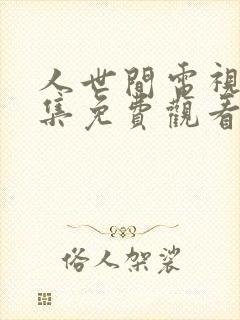 人世間電視
集免費觀看
俗人架裟